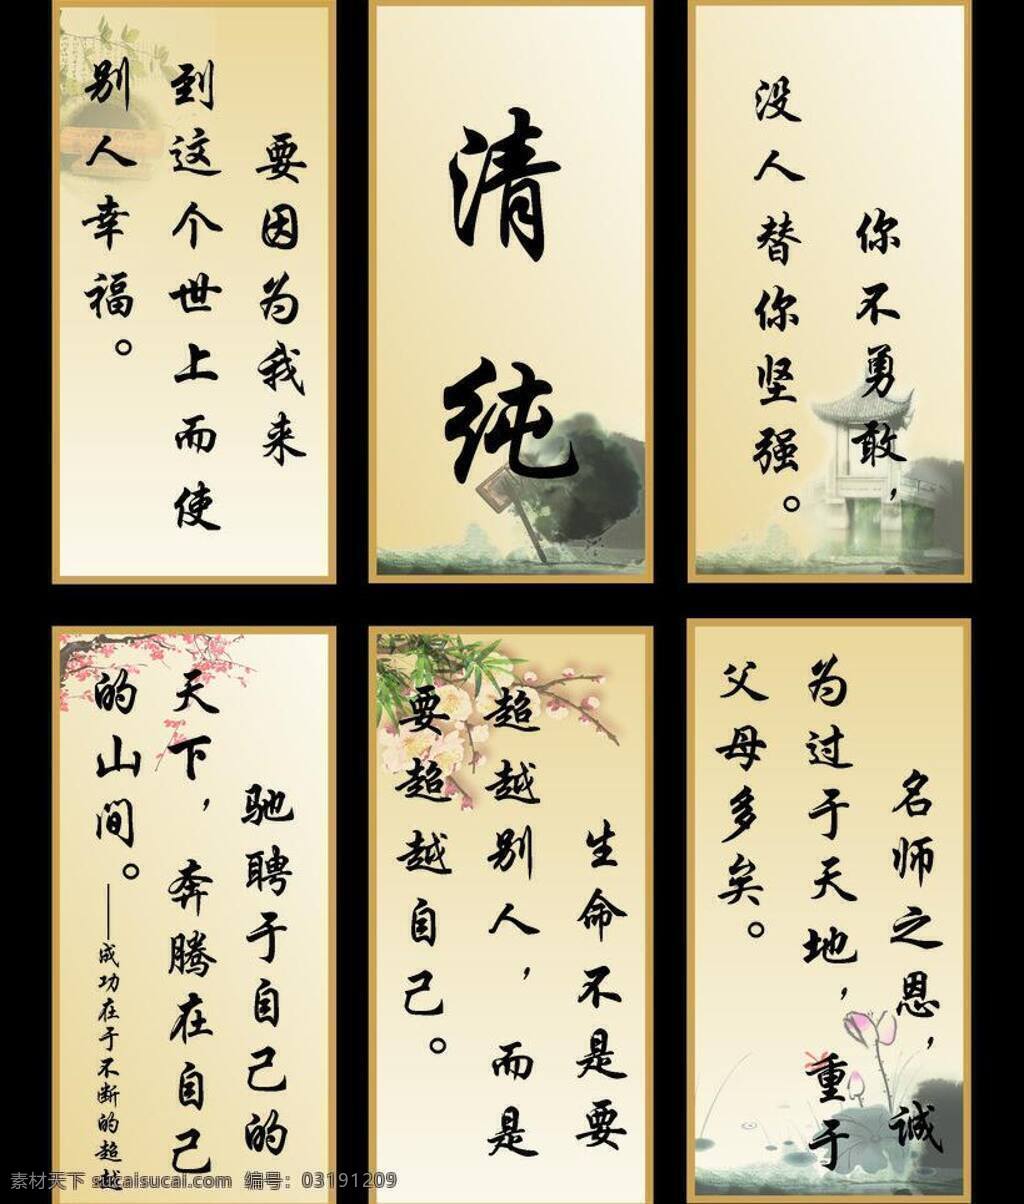 要因为我来
到这个世上而使
别人幸福。
清纯
你不勇敢，
没人替你坚强。
驰聘于自己的
天下，奔腾在自己
的山间。
——成功在于不断的超越
生命不是要
超越别人，而是
要超越自己。
名师之恩，诚
为过于天地，重于
父母多矣。
素材天下 sucaisucai.com 编号：03191209